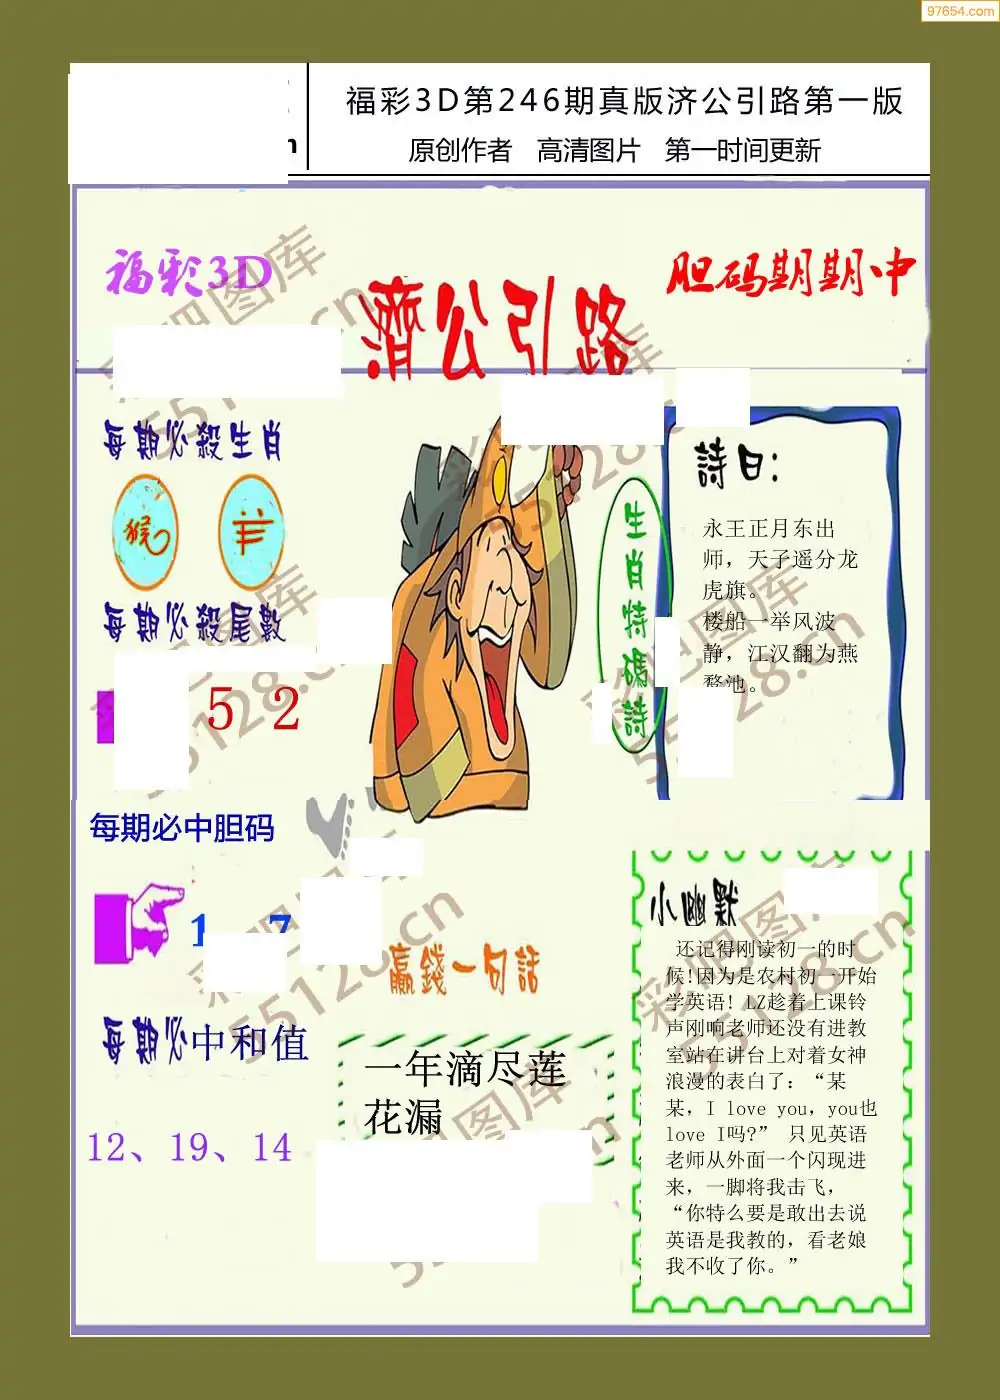 97654.com
福彩3D第246期真版济公引路第一版
原创作者 高清图片 第一时间更新
福彩3D
胆码期期中
濟公引路
每期必殺生肖
猴 羊
每期必殺尾數
5 2
生肖特碼詩
詩曰：
永王正月东出
师，天子遥分龙
虎旗。
楼船一举风波
静，江汉翻为燕
鹜池。
每期必中胆码
1 7
每期必中和值
12、19、14
贏錢一句話
一年滴尽莲
花漏
小幽默
还记得刚读初一的时
候！因为是农村初一开始
学英语！LZ趁着上课铃
声刚响老师还没有进教
室站在讲台上对着女神
浪漫的表白了：“某
某，I love you，you也
love I吗?” 只见英语
老师从外面一个闪现进
来，一脚将我击飞，
“你特么要是敢出去说
英语是我教的，看老娘
我不收了你。”
彩吧图库
55128.cn